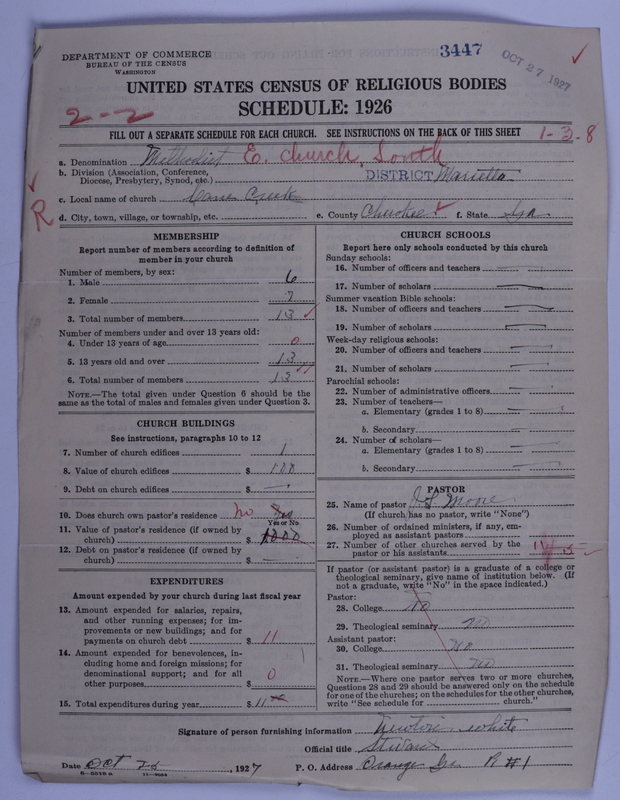 DEPARTMENT OF COMMERCE
BUREAU OF THE CENSUS
WASHINGTON
3447
OCT 27 1927
UNITED STATES CENSUS OF RELIGIOUS BODIES
SCHEDULE: 1926
2-2
FILL OUT A SEPARATE SCHEDULE FOR EACH CHURCH. SEE INSTRUCTIONS ON THE BACK OF THIS SHEET
1-3-8
a. Denomination Methodist E. Church, South
b. Division (Association, Conference, Diocese, Presbytery, Synod, etc.) DISTRICT Marietta
c. Local name of church Creek
R
d. City, town, village, or township, etc. e. County Cherokee f. State Ga
MEMBERSHIP
Report number of members according to definition of
member in your church
Number of members, by sex:
1. Male 6
2. Female 7
3. Total number of members 13
Number of members under and over 13 years old:
4. Under 13 years of age 0
5. 13 years old and over 13
6. Total number of members 13
NOTE.—The total given under Question 6 should be the
same as the total of males and females given under Question 3.
CHURCH BUILDINGS
See instructions, paragraphs 10 to 12
7. Number of church edifices 1
8. Value of church edifices $ 100
9. Debt on church edifices $ —
10. Does church own pastor's residence No
Yes or No
11. Value of pastor's residence (if owned by
church) $ 1000
12. Debt on pastor's residence (if owned by
church) $
EXPENDITURES
Amount expended by your church during last fiscal year
13. Amount expended for salaries, repairs,
and other running expenses; for im-
provements or new buildings; and for
payments on church debt $ 11
14. Amount expended for benevolences, in-
cluding home and foreign missions; for
denominational support; and for all
other purposes $ 0
15. Total expenditures during year $ 11
CHURCH SCHOOLS
Report here only schools conducted by this church
Sunday schools:
16. Number of officers and teachers
17. Number of scholars
Summer vacation Bible schools:
18. Number of officers and teachers
19. Number of scholars
Week-day religious schools:
20. Number of officers and teachers
21. Number of scholars
Parochial schools:
22. Number of administrative officers
23. Number of teachers—
a. Elementary (grades 1 to 8)
b. Secondary
24. Number of scholars—
a. Elementary (grades 1 to 8)
b. Secondary
PASTOR
25. Name of pastor Moore
(If church has no pastor, write "None")
26. Number of ordained ministers, if any, em-
ployed as assistant pastors
27. Number of other churches served by the
pastor or his assistants 5
If pastor (or assistant pastor) is a graduate of a college or
theological seminary, give name of institution below. (If
not a graduate, write "No" in the space indicated.)
Pastor:
28. College No
29. Theological seminary No
Assistant pastor:
30. College No
31. Theological seminary No
NOTE.—Where one pastor serves two or more churches,
Questions 28 and 29 should be answered only on the schedule
for one of the churches; on the schedules for the other churches,
write "See schedule for church."
Signature of person furnishing information Newton White
Official title Stward
Date Oct 25, 1927 P. O. Address Orange Ga R #1